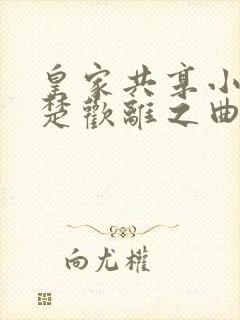 皇家共享小
楚歡離之曲
向尤權